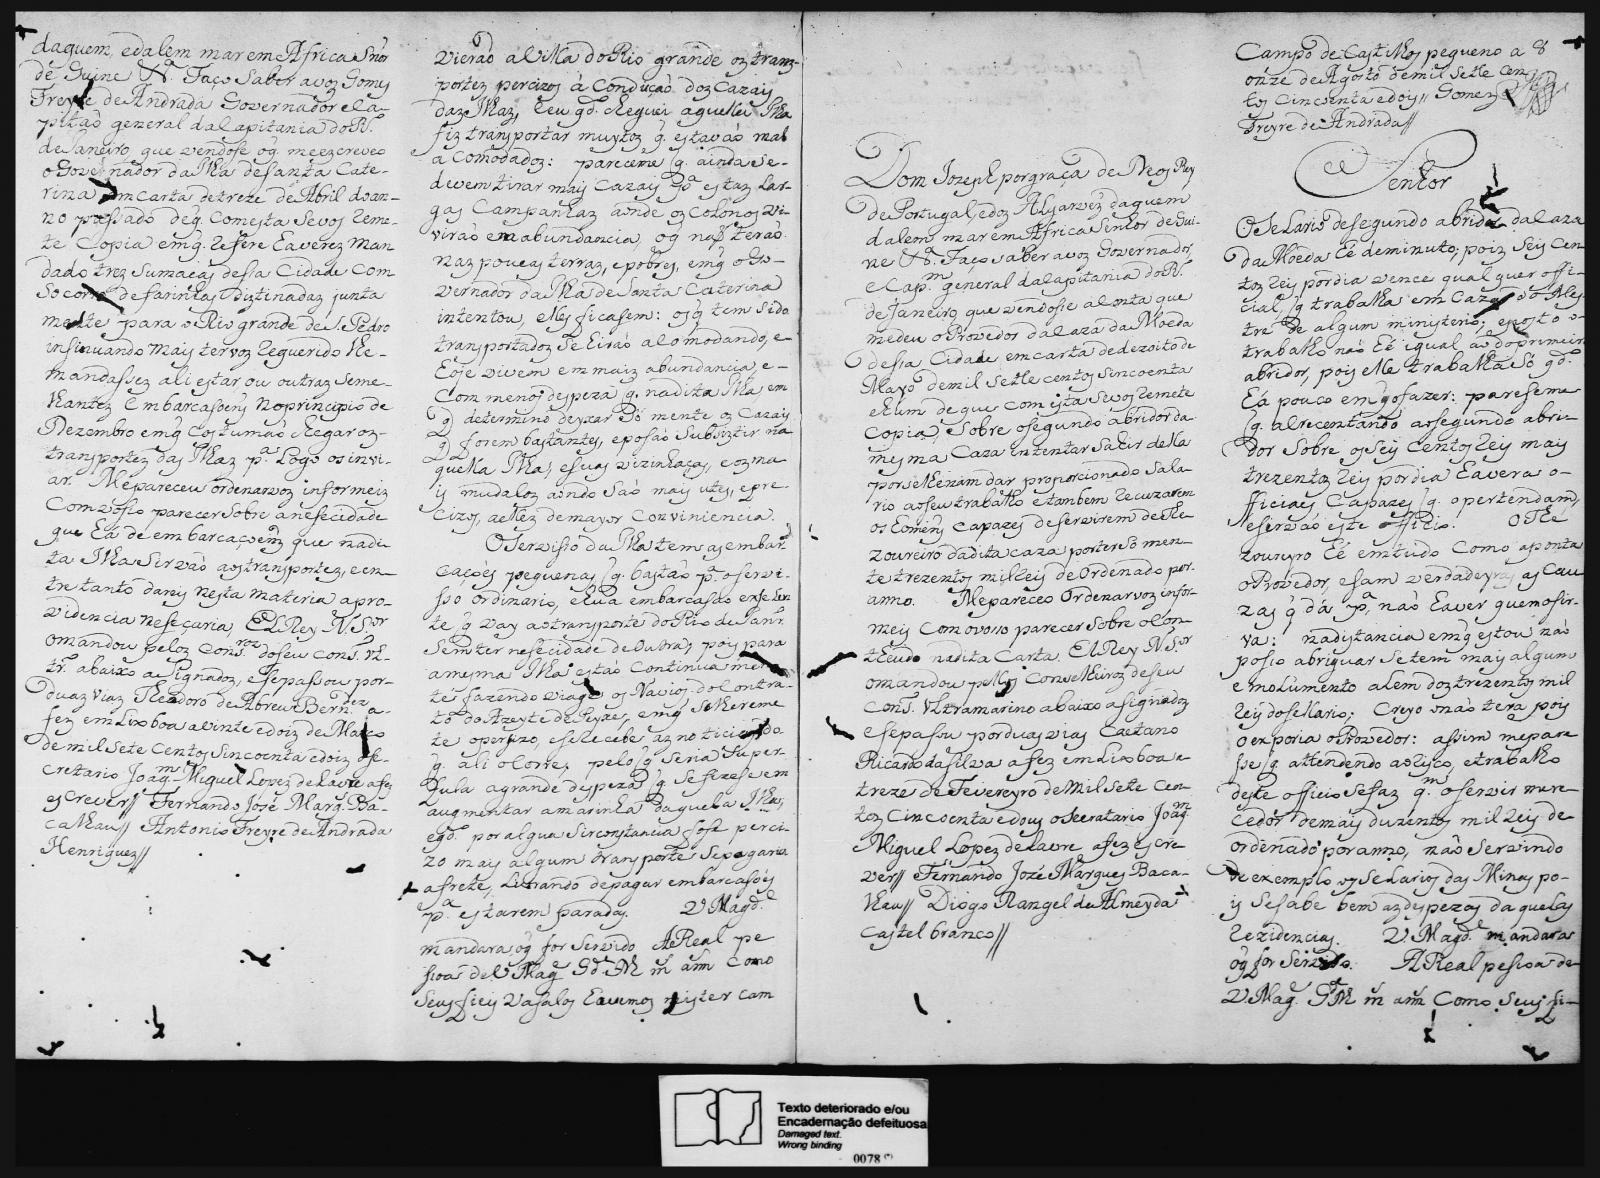 daquem, edalem mar em Africa Snõr
de Guine &.ª Faço saber avos Gomes
Freyre de Andrada Governador e Ca-
pitaõ general da Capitania do R.º
de Janeiro, que vendose oq̃ meescreveo
o Governador da Ilha de Santa Cate-
rina em carta de treze de Abril do an-
no passado de q̃ Comesta sevos Reme-
te Copia emq̃. Refere Haverez man
dado trez sumacas desta Cidade com
Socorro de farinhas Distinadaz junta
mente para o Rio grande de S. Pedro
insinuando mais tervos Requerido lhe-
mandassez ali estar ou outraz seme-
lhantez Embarcasoens noprincipio de
Dezembro emq̃ Costumaõ chegar oz-
transportez das Ilhaz p.ª Logo os invi-
ar. Mepareceu ordenarvoz informeiz
Comvosso parecer sobre anesecidade
que Há de embarcaçoens que nadi-
ta Ilha Sirvaõ aos transportez, e en-
tre tanto dareis nesta materia apro-
videncia neseçaria, ElRey N. S.or
omandou pelos Cons.ros doseu Cons.º Ul-
tr.º abaixo aSignados, esepassou por-
duaz viaz Theodoro de Abreu Bern.dez a-
fez em Lixboa avinte edoiz de Março
de mil Sete Centos Sincoenta edoiz ose-
cretario Joaq.m Miguel Lopez de Lavre afez
escrever // Fernando José Marq. Ba-
calhau // Antonio Freyre de Andrada
Henriquez //
Vieraõ al Ilha do Rio grande os tranz-
portez percizos á Conduçaõ doz Cazais
daz Ilhaz, eeu q.do cheguei aquella Ilha
fiz transportar muytoz q̃. estavaõ mal
acomodados: pareceme q̃. ainda se-
devem tirar mais Cazais p.ª estaz Lar-
gas Campanhaz aonde oz Colonos vi-
viraõ em abundancia, oq̃ naõ teraõ
naz poucas terraz, epobres, emq̃ o Go-
vernador da Ilha de Santa Caterina
intentou, elles ficasem: osq̃ tem sido
transportados Se hiraõ acomodando, e-
hoje vivem em maiz abundancia, e-
Com menos despeza q̃. nadita Ilha em
q̃ determino deyxar Só mente os Cazais
q̃ forem bastantes, eposaõ Subsiztir na
quella Ilha, esuas vizinhaças, eozma
is mudalos aonde Saõ mais uteis, epre-
cizos, aellez demayor Conviniencia.
O Servisso da Ilha tem as embar
caçoẽs pequenas q̃. bastaõ p.ª oservi-
sso ordinario, elua embarcasaõ exselen
te q̃ vay aotransporte do Rio de Jan.º
Semter nesecidade de outra; pois para
amesma Ilha estaõ Continua men
te fazendo viage os Navios do Contra-
to do Azeyte de Peyxe, emq̃ Selhereme
te opercizo, eserecebe az noticias do
q̃. ali oCorre; pelo q̃ Seria super-
flula agrande despeza q̃ Sefizese em
augmentar amarinha daquela Ilha;
eq.do por algua Circonstancia fose perci-
zo mais algum transporte Sepagaria
afrete, Livrando depagar embarcasoẽs
p.ª estarem paradas. V Magd.
mandará oq̃ for Servido A Real pe
ssoa de V Mag.e G.de D.s m a.s Como
Seus fieis Vasalos Havemos mister Cam
Dom Jozeph por graça de Deos Rey
de Portugal edos Algarvez daquem
dalem mar em Africa Senhor de Gui-
ne &.ª Faço saber avos Governador,
e Cap.m general da Capitania do R.º
de Janeiro, que vendose aConta que
medeu o Provedor da Caza da Moeda
desta Cidade em carta de dezoito de
Mayo de mil Sette centos Sincoenta
ehum de que com esta Sevos Remete
Copia, Sobre osegundo abridor da
mesma Caza intentar Sahir della
por selhenam dar proporcionado Sala-
rio aoseu trabalho etambem Recuzarem
os homens capazes deservirem de The-
zoureiro dadita caza porterSó men-
te trezentos milreis de ordenado por-
anno. Mepareceo Ordenarvoz infor-
meis Com ovosso parecer Sobre oCon-
theudo nadita Carta. ElRey N. S.or
omandou pellos Conselheiroz deseu
Cons.º Ultramarino abaixo asignadoz
esepassou porduas vias Caetano
Ricardo dasilva afez em Lixboa a
treze de Fevereyro de Mil Sete Cen-
tos Cincoenta edous oSecratario Joaq.m
Miguel Lopez de Lavre afez escre-
ver // Fernando José Marques Baca-
lhau // Diogo Rangel de Almeyda
Castel branco //
Campo de Cast.lhos pequeno a 8
onze de Agosto de mil Sette Cen
tos Cincoenta edois // Gomez
Freyre de Andrada //
Senhor
OSelario desegundo abridor da Caza
da Moeda hé deminuto, pois Seis Cen
tos reis pordia vence qual quer offi-
cial, q̃ trabalha em Caza do Mes-
tre de algum ministerio; eposto o-
trabalho naõ hé igual ao doprimeiro
abridor, pois elle trabalha Só q.do
há pouco em q̃ofazer: pareseme
q̃. alrecentando aosegundo abri-
dor Sobre osSeis Centos reis mais
trezentos reis pordia haverá o-
fficiais Capazes q̃. opertendam,
esirvaõ este officio. OThe
zoureyro hé emtudo Como aponta
oProvedor, esam verdadeyras as Cau
zas q̃ dá p.ª naõ haver quemosir-
va: nadistancia emq̃ estou naõ
posso abriguar setem mais algum
emolumento alem dos trezentos mil
reis dosellario; Creyo onaõ terá pois
oexporia oProvedor: assim mepare
sse q̃ attendendo aoRisco, etrabalho
deste officio Sefaz q.m oservir mere-
cedor demais duzentos mil reis de
ordenado por anno, naõ Servindo
de exemplo os Selarios das Minas po-
is Sesabe bem asdespezas daquelas
Rezidencias. V Magd. mandará
oq̃ for Servido. A Real pessoa de
V Mag.e G.de D.s m a.s Como Seus fi-
Texto deteriorado e/ou
Encadernação defeituosa
Damaged text.
Wrong binding
0078 (*)